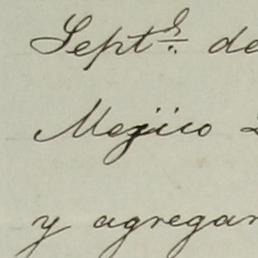 Septe. de
Mejico
y agregar